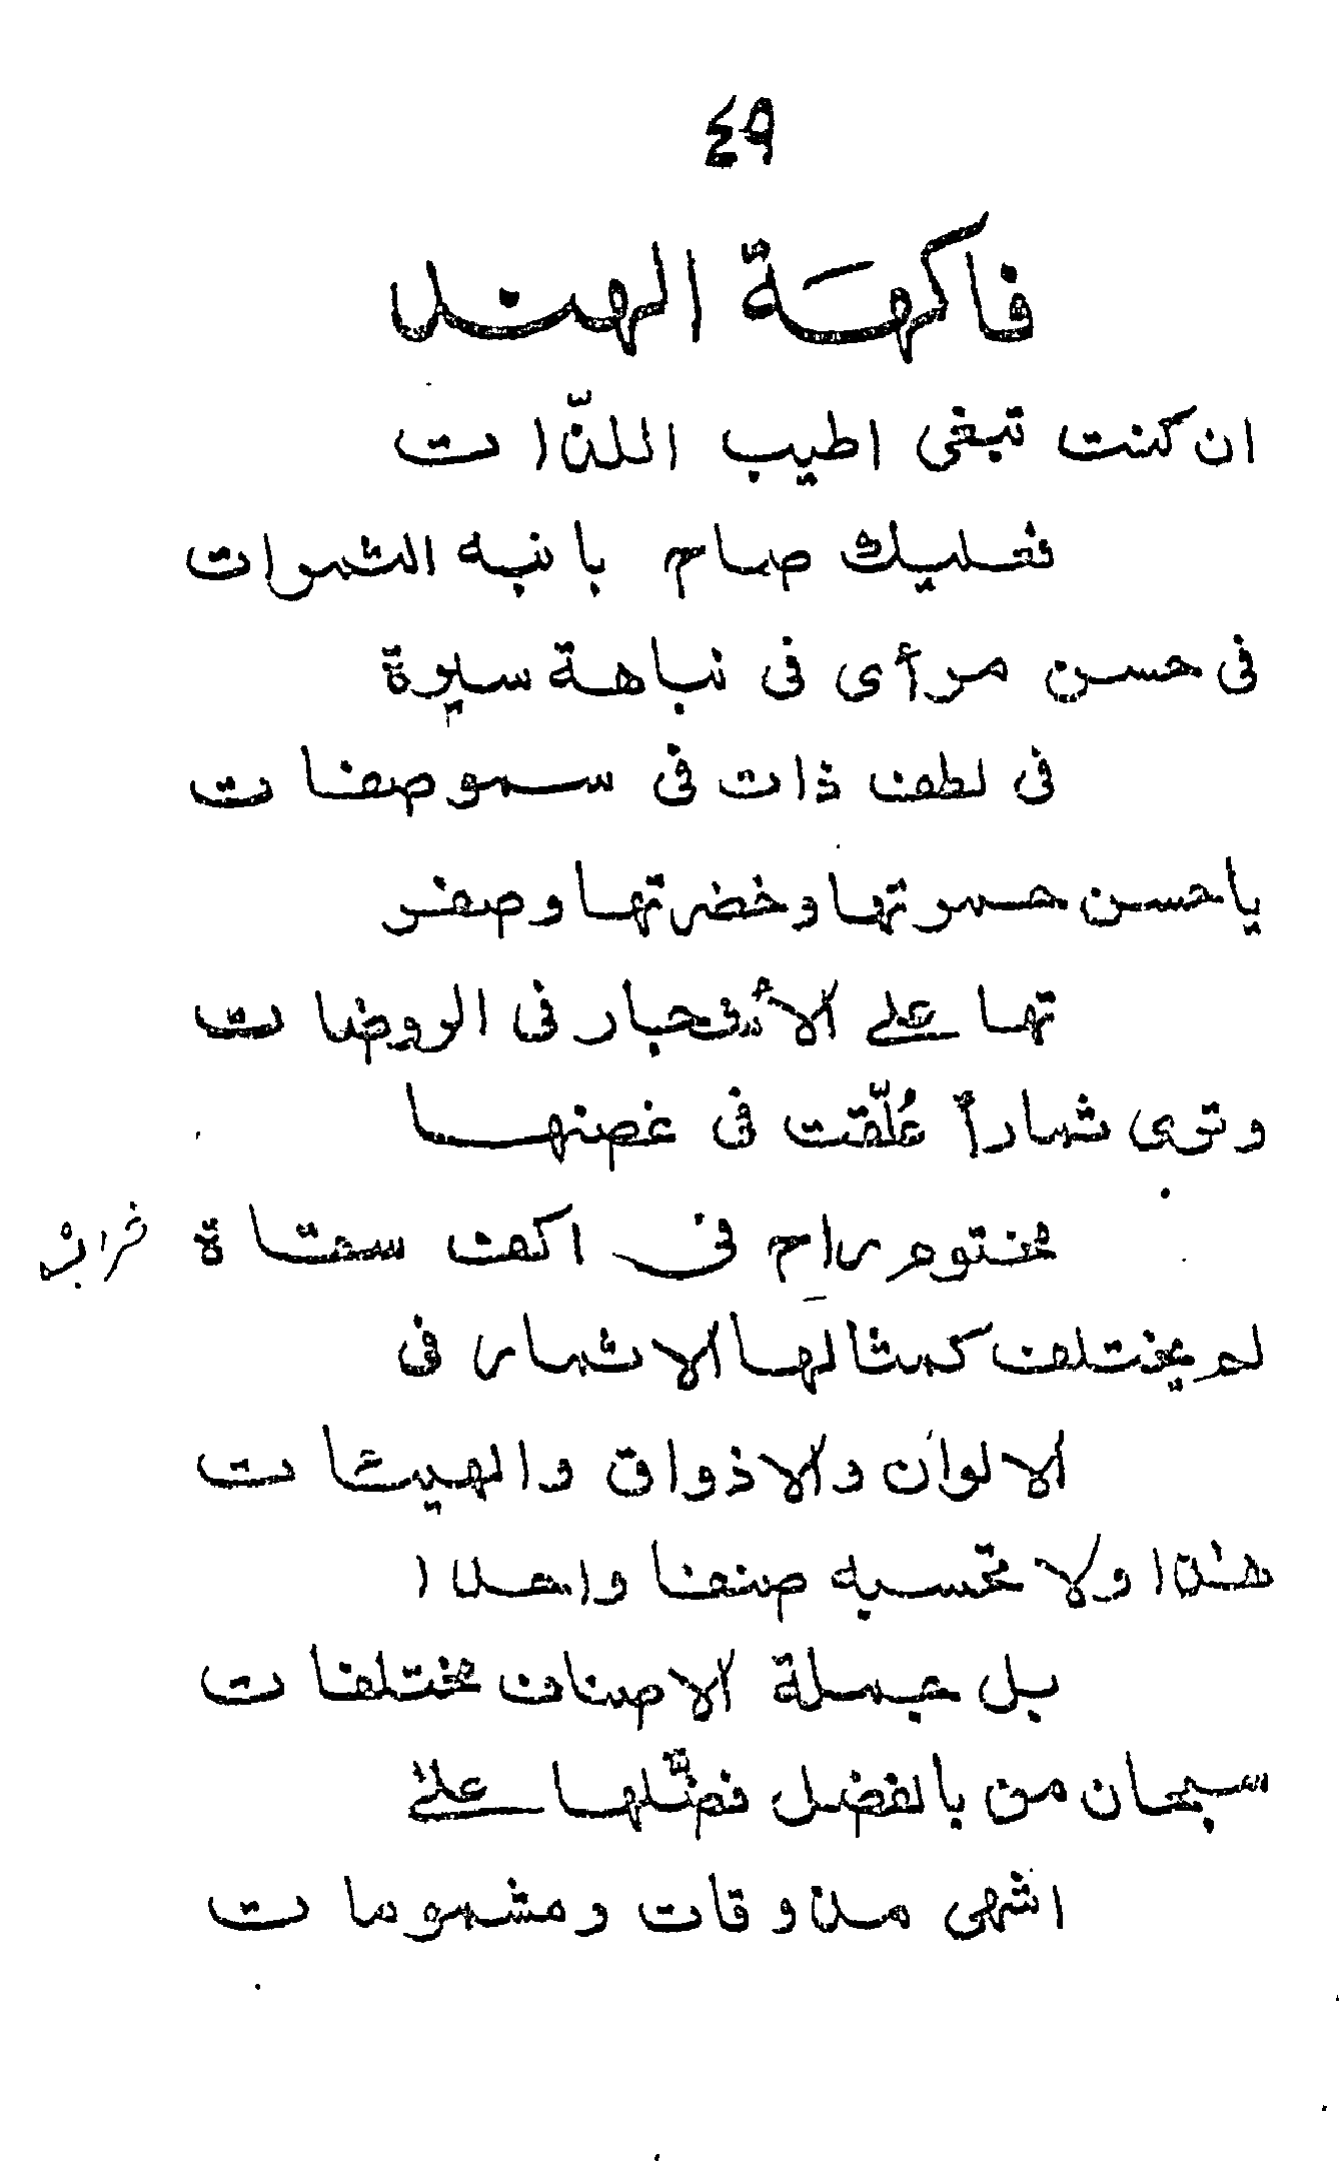 ٤٩
فاكهَة الهند
ان كنت تبغى اطيب اللذّات
فعليك صاح بانبه الثمرات
فى حسن مرأى فى نباهة سيرة
فى لطف ذات فى سمو صفات
يا حسن حمرتها وخضرتها وصفر
تها على الأشجار فى الروضات
وترى ثماراً عُلّقت فى غصنها
مختوم راح فى اكف سقاة
لم يختلف كمثالها الاثمار فى
الالوان والاذواق والهيئات
هذا ولا تحسبه صنفا واحدا
بل جملة الاصناف مختلفات
سبحان من بالفضل فضّلها على
اشهى مذوقات ومشمومات